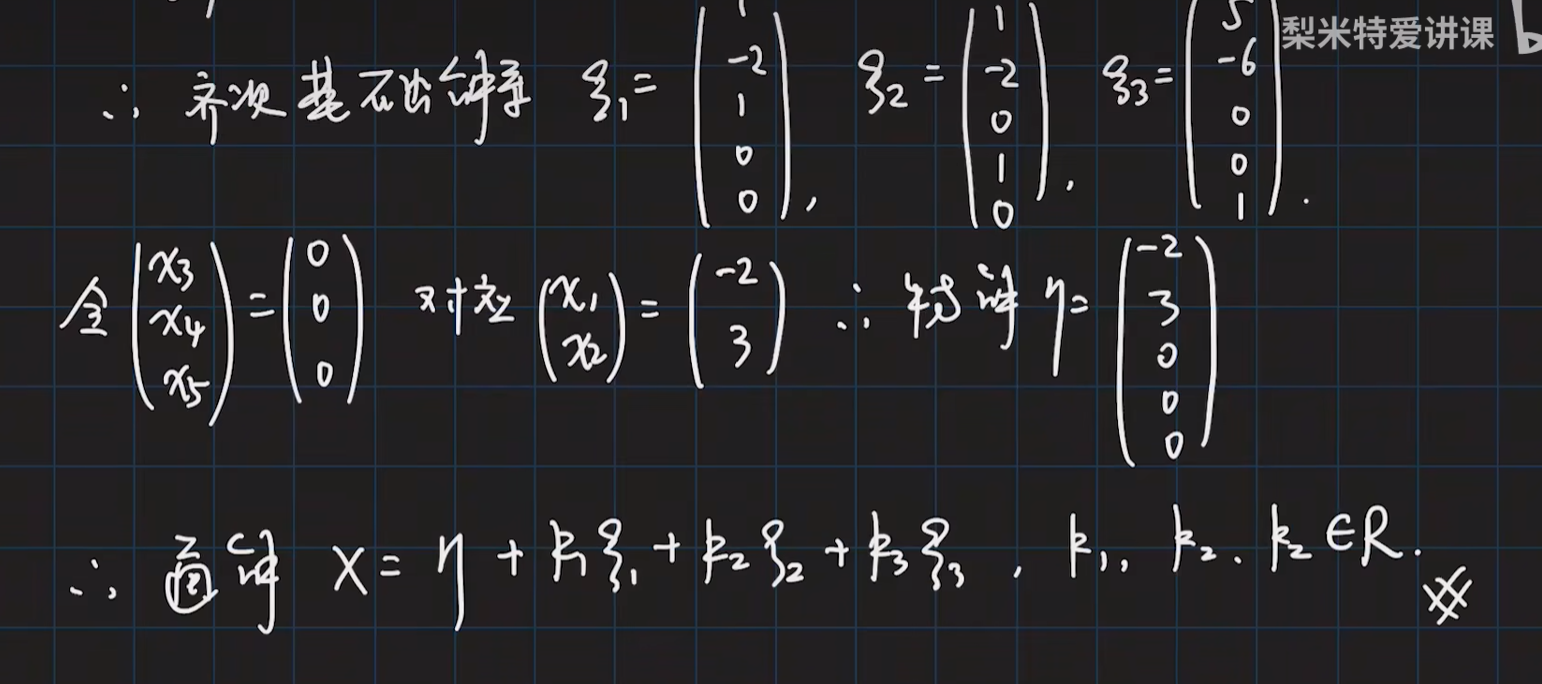 梨米特爱讲课
∴ 齐次基础解系 ξ₁ = (1, -2, 1, 0, 0), ξ₂ = (1, -2, 0, 1, 0), ξ₃ = (5, -6, 0, 0, 1).
令 (x₃, x₄, x₅) = (0, 0, 0) 对应 (x₁, x₂) = (-2, 3) ∴ 特解 η = (-2, 3, 0, 0, 0)
∴ 通解 X = η + k₁ξ₁ + k₂ξ₂ + k₃ξ₃, k₁, k₂、k₂ ∈ R.